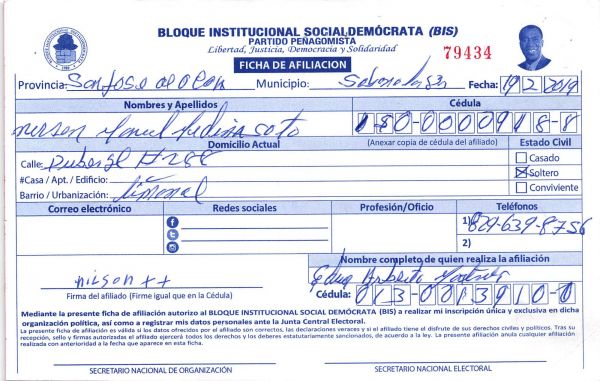 BLOQUE INSTITUCIONAL SOCIAL DEMÓCRATA (BIS)
PARTIDO PEÑAGOMISTA
Libertad, Justicia, Democracia y Solidaridad
79434
FICHA DE AFILIACION
Provincia: San Jose de Ocoa Municipio: Fecha: 19/2/2019
Nombres y Apellidos Cédula
nerson Medina soto
(Anexar copia de cédula del afiliado)
Domicilio Actual Estado Civil
Calle: Duberge # 288
Casado
#Casa / Apt. / Edificio:
Soltero
Barrio / Urbanización: limonal
Conviviente
Correo electrónico Redes sociales Profesión/Oficio Teléfonos
1) 829-639-8756
2)
Nombre completo de quien realiza la afiliación
nilson
Firma del afiliado (Firme igual que en la Cédula)
Cédula: 013-0013910-0
Mediante la presente ficha de afiliación autorizo al BLOQUE INSTITUCIONAL SOCIAL DEMÓCRATA (BIS) a realizar mi inscripción única y exclusiva en dicha
organización política, así como a registrar mis datos personales ante la Junta Central Electoral.
La presente ficha de afiliación es válida si los datos ofrecidos por el afiliado son correctos, las declaraciones veraces y si el afiliado tiene el disfrute de sus derechos civiles y políticos. Tras su
recepción, sello y firmas autorizadas el afiliado ejercerá todos los derechos y los deberes estatutariamente sancionados, de acuerdo a la ley. La presente afiliación anula cualquier afiliación
realizada con anterioridad a la fecha que aparece en esta ficha.
SECRETARIO NACIONAL DE ORGANIZACIÓN SECRETARIO NACIONAL ELECTORAL